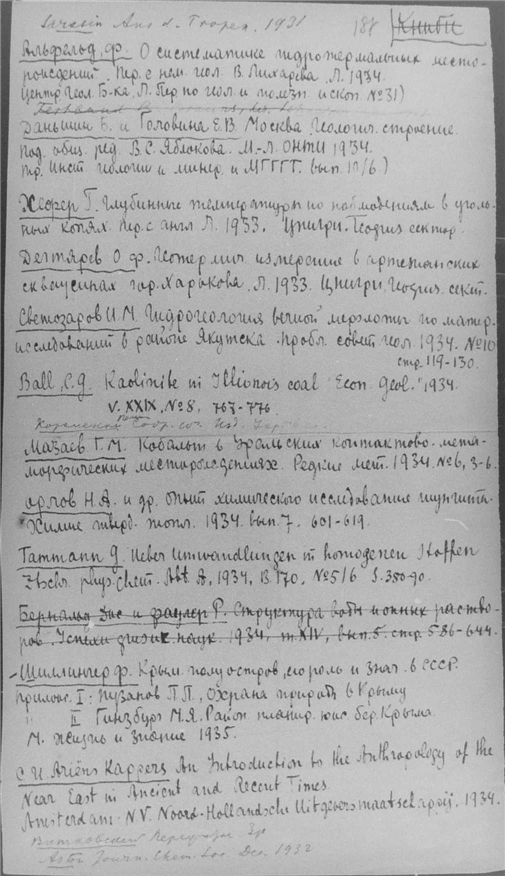 Sarasin Aus d. Tropen. 1931 188 Книги
Альфельд, Ф. О систематике гидротермальных место-
рождений. Пер. с нем. геол. В. Лихарева. Л. 1934.
Центр. геол. б-ка. Л. Пер. по геол. и полезн. ископ. № 31)
Даньшин Б. и Головина Е.В. Москва Геологич. строение
под общ. ред. В.С. Яблокова. М.-Л. ОНТИ 1934.
тр. Инст геологии и минер. и МГГГТ. вып. 10/6)
Хефер Г. Глубинные температуры по наблюдениям в уголь-
ных копях. Пер. с англ. Л. 1933. ЦНИГРИ. Геофиз сектор.
Дегтярев О Ф. Геотермич измерение в артезианских
скважинах гор. Харькова. Л. 1933. ЦНИГРИ. Геофиз. сект.
Светозаров И.М. Гидрогеология вечной мерзлоты по матер.
исследований в районе Якутска. Пробл. совет. геол. 1934. № 10
стр. 119-130.
Ball, C.G. Kaolinite in Illionois coal Econ. Geol. 1934.
V. XXIX, № 8, 767-776
Мазаев Г.М. Кобальт в Уральских контактово-мета-
морфических месторождениях. Редкие мет. 1934. № 6, 3-6.
Орлов Н.А. и др. Опыт химического исследования шунгита.
Химия тверд. топл. 1934. вып. 7. 601-619.
Tammann G. Ueber Umwandlungen in homogenen Stoffen
Ztschr. phys. Chem. Abt. A, 1934, B. 170, № 5/6 S. 380-90.
Бернал Дж и Фаулер Р. Структура воды и ионных раство-
ров. Успехи физич наук. 1934, т. XIV, вып. 5. стр. 586-644.
Шиллингер Ф. Крым. полуостров, его роль и знач. в СССР.
Прилож. I: Пузанов П П, Охрана природы в Крыму
II Гинзбург М.Я. Район. планир. юж бер. Крыма
М. Жизнь и знание 1935.
C U. Ariëns Kappers An Introduction to the Anthropology of the
Near East in Ancient and Recent Times
Amsterdam. N.V. Noord-Hollandsche Uitgeversmaatschappij. 1934.
Journ. Chem. Soc Dec. 1932